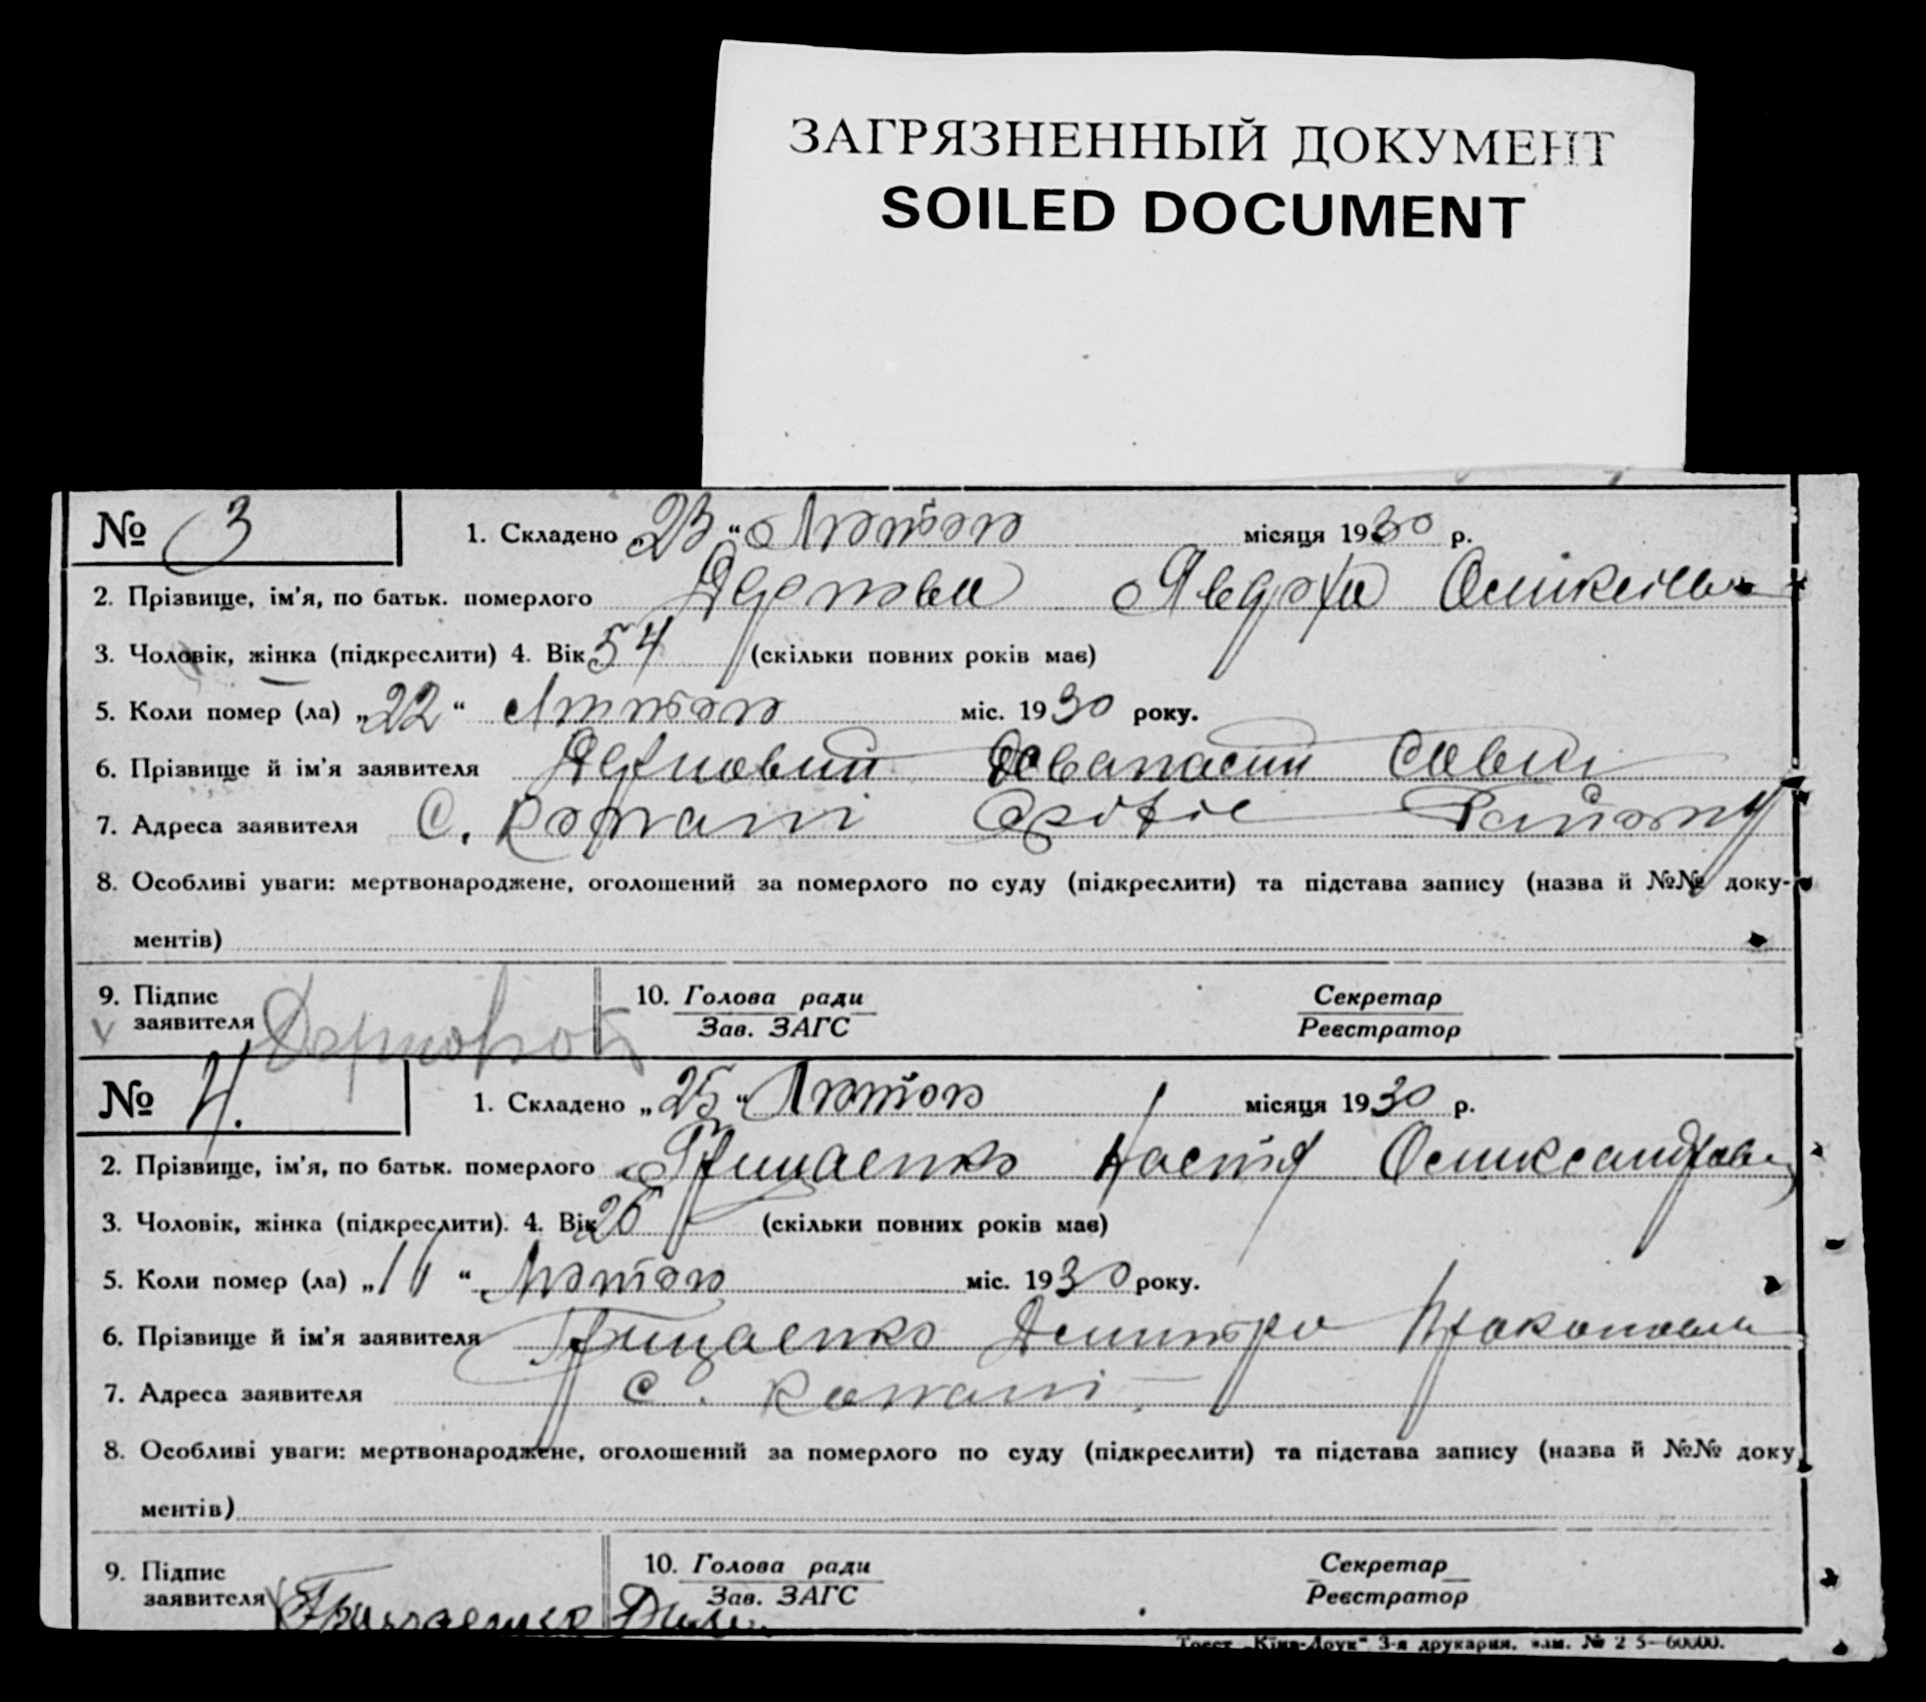 ЗАГРЯЗНЕННЫЙ ДОКУМЕНТ
SOILED DOCUMENT
№ 3 1. Складено „23“ Лютого місяця 1930 р.
2. Прізвище, ім'я, по батьк. померлого
3. Чоловік, жінка (підкреслити) 4. Вік 54 (скільки повних років має)
5. Коли помер (ла) „22“ Лютого міс. 1930 року.
6. Прізвище й ім'я заявителя
7. Адреса заявителя С. Району
8. Особливі уваги: мертвонароджене, оголошений за померлого по суду (підкреслити) та підстава запису (назва й №№ доку-
ментів)
9. Підпис 10. Голова ради Секретар
заявителя Зав. ЗАГС Реєстратор
№ 4. 1. Складено „25“ Лютого місяця 1930 р.
2. Прізвище, ім'я, по батьк. померлого Грищаенко Настя
3. Чоловік, жінка (підкреслити). 4. Вік 26 (скільки повних років має)
5. Коли помер (ла) „11“ Лютого міс. 1930 року.
6. Прізвище й ім'я заявителя Грищаенко Дмитро
7. Адреса заявителя с.
8. Особливі уваги: мертвонароджене, оголошений за померлого по суду (підкреслити) та підстава запису (назва й №№ доку
ментів)
9. Підпис 10. Голова ради Секретар
заявителя Зав. ЗАГС Реєстратор